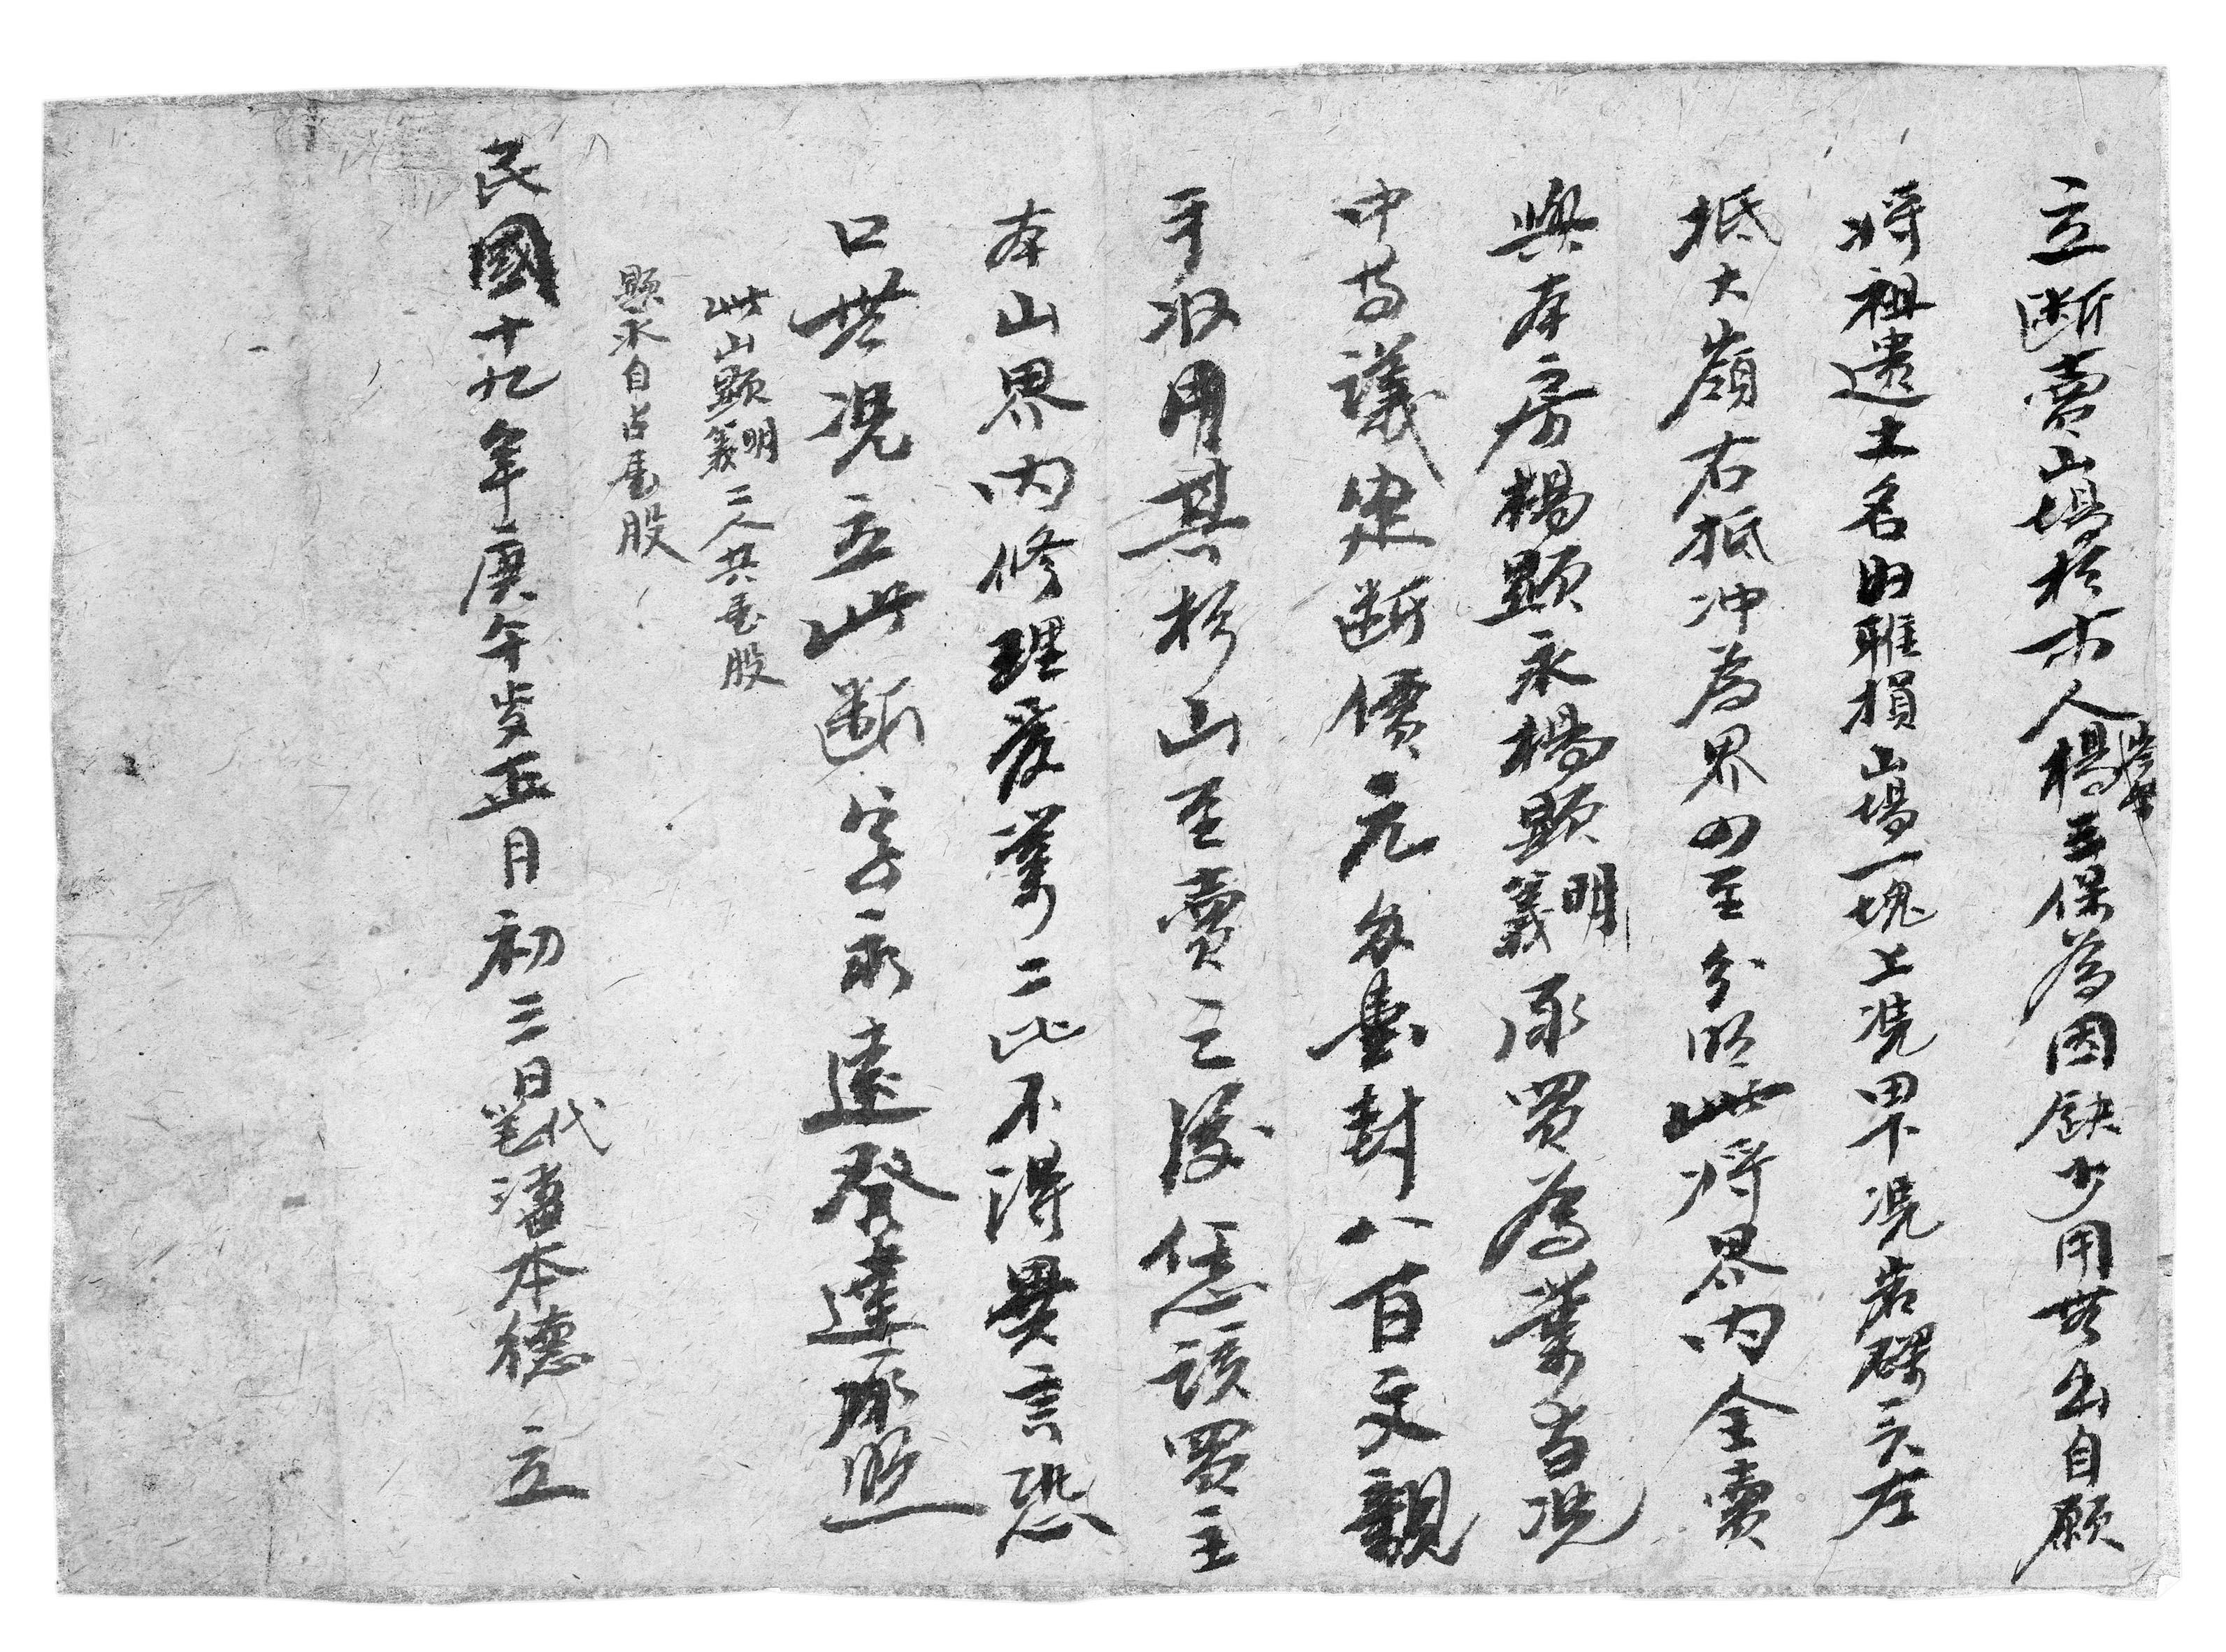 立断賣山塲杉木人楊三保為因缺少用無出自願
将祖遺土名旧雅損山塲一塊上凭田下凭岩磜三天左
抵大嶺右抵冲為界四至分明此将界内全賣
與本房楊顯永楊顯明義承買為業当凭
中言議定断價元錢壹封八百文親
手收用其杉山至賣之後恁該買主
本山界内修理発業二比不得異言恐
口無凭立此断字永遠發達承照
此山顯明義二人共壱股
顯永自占壱股
民國十九年庚午歲正月初三日代筆潘本德 立